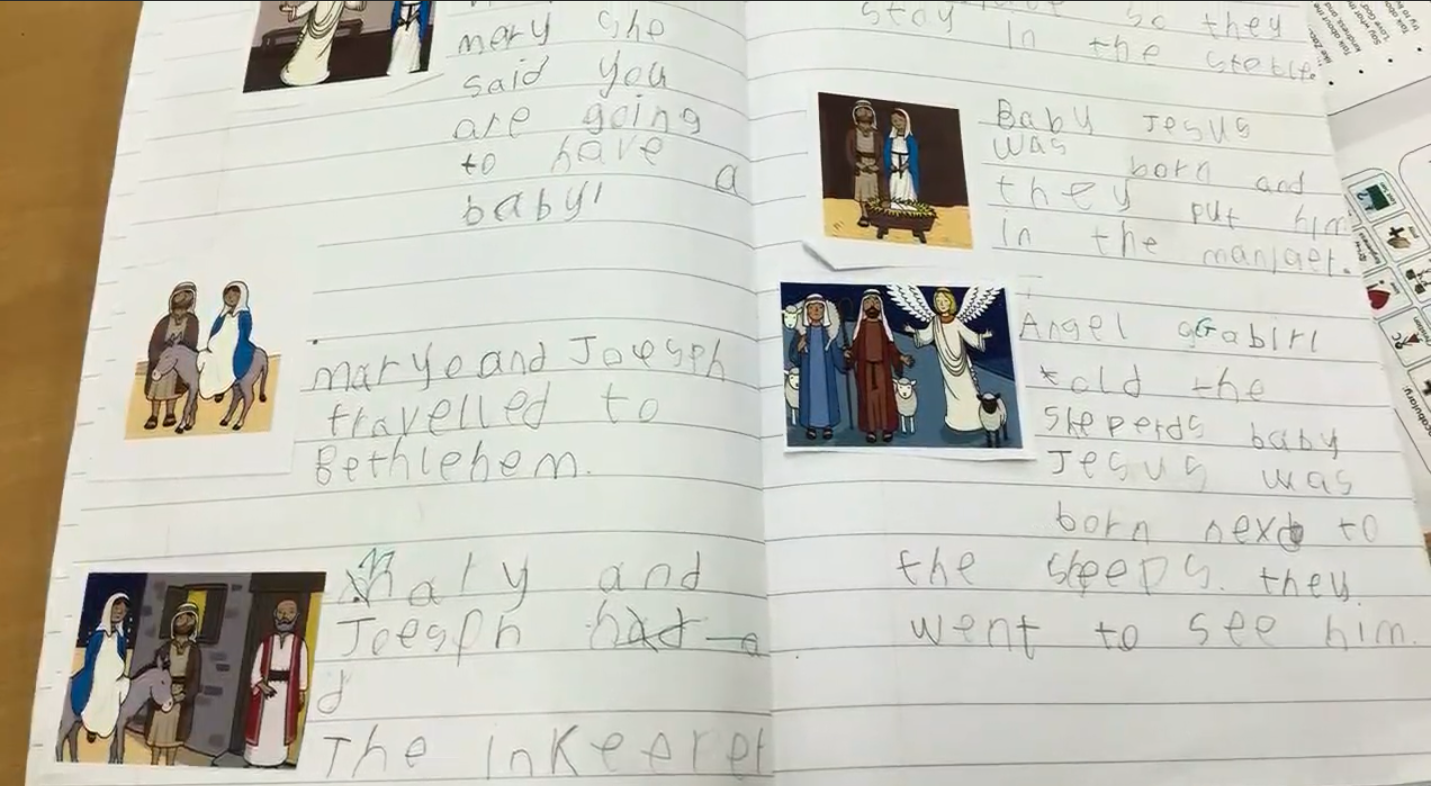 mery she
said you
are going
to have a
baby!
maryo and Joesph
travelled to
Bethlehem.
Mary and
Joesph had a
d
The inKeerer
stay so they
in the steble.
Baby Jesus
was born and
they put him
in the manjaer.
Angel gGabirl
told the
sheperds baby
Jesus was
born next to
the sheeps. they
went to see him.